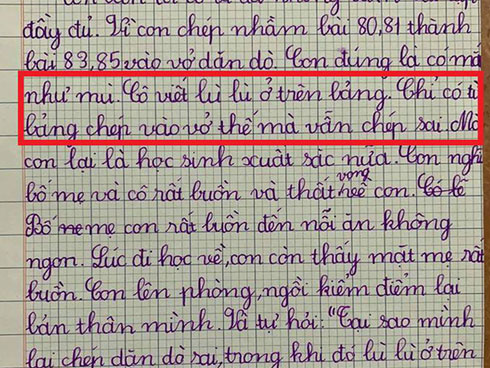 đầy đủ. Vì con chép nhầm bài 80,81 thành
bài 83,85 vào vở dặn dò. Con đúng là có mắ
như mù. Cô viết lù lù ở trên bảng. Chỉ có từ
bảng chép vào vở thế mà vẫn chép sai. Mà
con lại là học sinh xuất sắc nữa. Con nghĩ
bố mẹ và cô rất buồn và thất vọng về con. Có lẽ
Bố me mẹ con rất buồn đến nỗi ăn không
ngon. Lúc đi học về, con còn thấy mặt mẹ rất
buồn. Con lên phòng, ngồi kiểm điểm lại
bản thân mình. Và tự hỏi: "Tại sao mình
lại chép dặn dò sai, trong khi đó lù lù ở trên